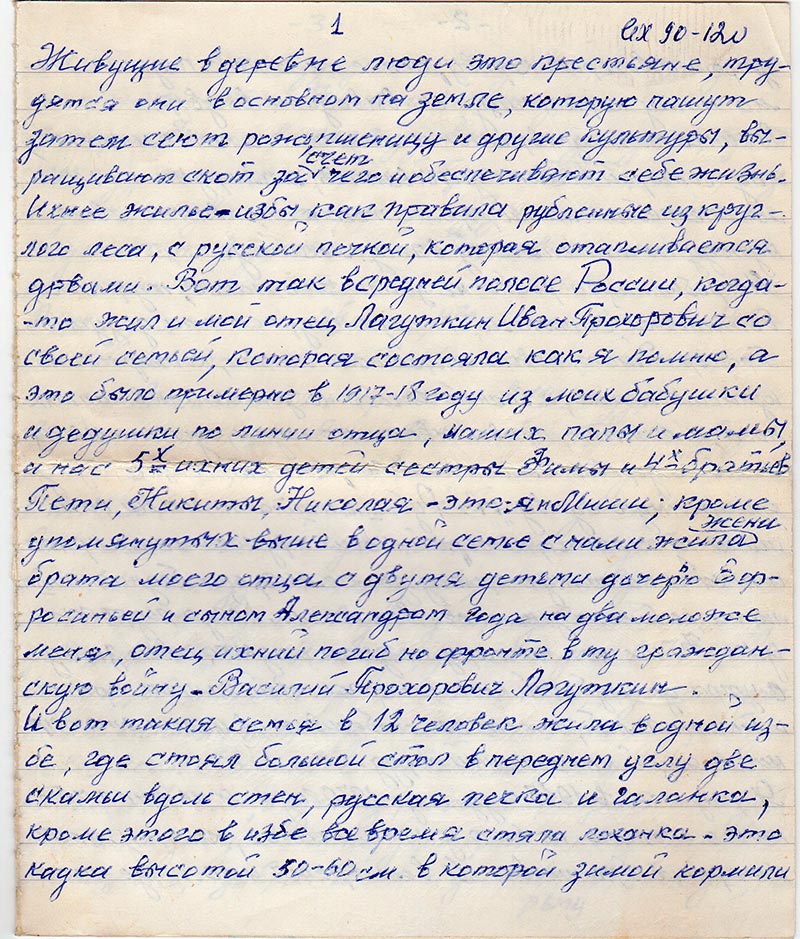 1
Живущие в деревне люди это крестьяне, тру-
дятся они в основном на земле, которую пашут
затем сеют рожь, пшеницу и другие культуры, вы-
счет
ращивают скот за чего и обеспечивают себе жизнь.
Ихнее жилье-избы как правила рубленные из круг-
лого леса, с русской печкой, которая отапливается
дрвами. Вот так в средней полосе России, когда-
-то жил и мой отец Лагуткин Иван Прохорович со
своей семьей, которая состояла как я помню, а
это было примерно в 1917-18 году из моих бабушки
и дедушки по линии отца, наших папы и мамы,
и нас 5х ихних детей сестры Фимы и 4х братьев
Пети, Никиты, Николая - это я и Миши; кроме
жена
упомянутых выше в одной семье с нами жила
брата моего отца с двумя детьми дочерью Еф-
росиньей и сыном Александром года на два моложе
меня, отец ихний погиб на фронте в ту граждан-
скую войну - Василий Прохорович Лагуткин.
И вот такая семья в 12 человек жила в одной из-
бе, где стоял большой стол в переднем углу две
скамьи вдоль стен, русская печка и галанка,
кроме этого в избе все время стяла лоханка - это
кадка высотой 50-60 см. в которой зимой кормили